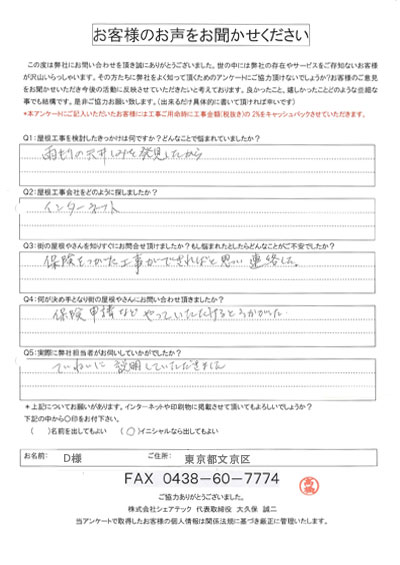 お客様のお声をお聞かせください
この度は弊社にお問い合わせ頂き誠にありがとうございました。世の中には弊社の存在やサービスをご存知ないお客様
が沢山いらっしゃいます。その方たちに弊社をよく知って頂くためのアンケートにご協力頂けないでしょうか？お客様のご意見
をお聞かせいただき今後の活動に反映させていただきたいと考えております。良かったこと、嬉しかったことどのような些細な
事でも結構です。是非ご協力お願い致します。（出来るだけ具体的に書いて頂ければ幸いです）
*本アンケートにご記入いただいたお客様には工事ご用命時に工事金額(税抜き)の2%をキャッシュバックさせていただきます。
Q1：屋根工事を検討したきっかけは何ですか？どんなことで悩まれていましたか？
雨もりの天井しみを発見したから
Q2：屋根工事会社をどのように探しましたか？
インターネット
Q3：街の屋根やさんを知りすぐにお問合せ頂けましたか？もし悩まれたとしたらどんなことがご不安でしたか？
保険をつかった工事ができればと思い連絡した。
Q4：何が決め手となり街の屋根やさんにお問い合わせ頂きましたか？
保険申請など やっていただけるとうかがった
Q5：実際に弊社担当者がお伺いしていかがでしたか？
ていねいに説明していただきました
*上記についてお願いがあります。インターネットや印刷物に掲載させて頂いてもよろしいでしょうか？
下記の中から〇印をお付下さい。
（　）名前を出してもよい （〇）イニシャルなら出してもよい
お名前： D様 ご住所： 東京都文京区
FAX 0438-60-7774
ご協力ありがとうございました。
株式会社シェアテック 代表取締役 大久保 誠二
当アンケートで取得したお客様の個人情報は関係法規に基づき厳正に管理いたします。